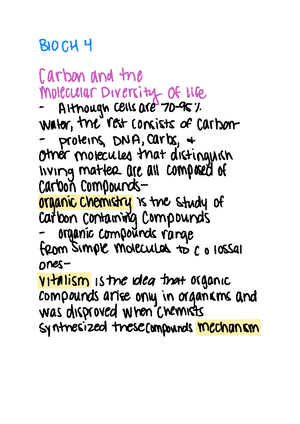 BIO CH 4
Carbon and the
Molecular Diversity of life
- Although cells are 70-95%
water, the rest consists of carbon-
- proteins, DNA, carbs, +
other molecules that distinguish
living matter are all composed of
carbon compounds-
organic chemistry is the study of
carbon containing compounds
- organic compounds range
from simple molecules to colossal
ones-
vitalism is the idea that organic
compounds arise only in organisms and
was disproved when chemists
synthesized these compounds mechanism